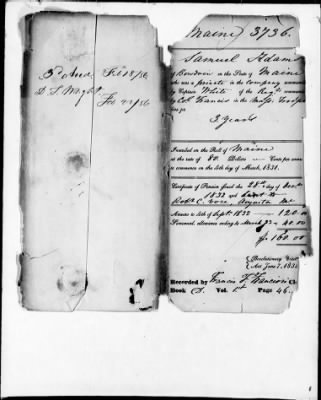 Maine 3736.
Samuel Adams
of Bowdoin in the State of Maine
who was a private in the Company commanded
by Captain White of the Regt commanded
by Col. Francis in the Mass. troops
for
3 years
Inscribed on the Roll of Maine
at the rate of 80 Dollars Cents per annum
to commence on the 4th day of March, 1831.
Certificate of Pension issued the 28th day of
1832 and sent to
Robt C. Vose Augusta Me
Arrears to 4th of Sept 1832 120.00
Semi-annual allowance ending 4 March 40.00
$160.00
Revolutionary
Act June 7, 1832
Recorded by Francis
Book D. Vol. Page 46.